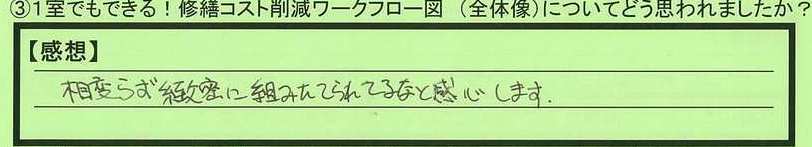 ③1室でもできる！修繕コスト削減ワークフロー図 （全体像）についてどう思われましたか？
【感想】
相変らず緻密に組みたてられてるなと感心します.